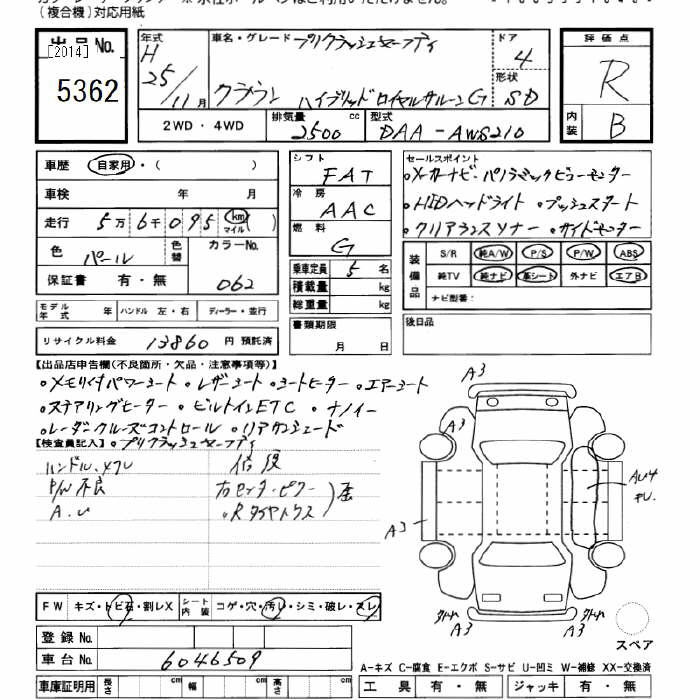 (複合機)対応用紙
出品No.
[2014]
5362
年式 車名・グレード プリクラッシュセーフティ ドア 4
H 25/11月 クラウン ハイブリッドロイヤルサルーンG 形状 SD
2WD・4WD 排気量 2500 cc 型式 DAA-AWS210
評価点 R
内装 B
車歴 自家用・( )
車検 年 月
走行 5万6千095 km マイル ( )
色 パール 色替 カラーNo. 062
保証書 有・無
モデル年式 年 ハンドル 左・右 ディーラー・並行
リサイクル料金 13860 円 預託済
シフト FAT
冷房 AAC
燃料 G
乗車定員 5 名
積載量 kg
総重量 kg
書類期限 月 日
セールスポイント
・メーカーナビ・パノラミックビューモニター
・HIDヘッドライト ・プッシュスタート
・クリアランスソナー ・サイドモニター
装備品 S/R 純A/W P/S P/W ABS
純TV 純ナビ 革シート 外ナビ エアB
ナビ型番:
後日品
【出品店申告欄(不良箇所・欠品・注意事項等)】
・メモリ付パワーシート ・レザーシート ・シートヒーター ・エアーシート
・ステアリングヒーター ・ビルトインETC ・ナノイー
・レーダークルーズコントロール ・リアサンシェード
【検査員記入】 ・プリクラッシュセーフティ
ハンドル、スレ 修復
P/W不良 右センターピラー
A.U ・Rダイヤトウス 歪
A3
A3
A3
AU4
キU.
A3
A3
FW キズ・トビ石・割レX シート内装 コゲ・穴・汚レ・シミ・破レ・スレ
スペア
登録No.
車台No. 6046509
A-キズ C-腐食 E-エクボ S-サビ U-凹ミ W-補修 XX-交換済
車庫証明用 長さ cm 幅 cm 高さ cm
工具 有・無 ジャッキ 有・無